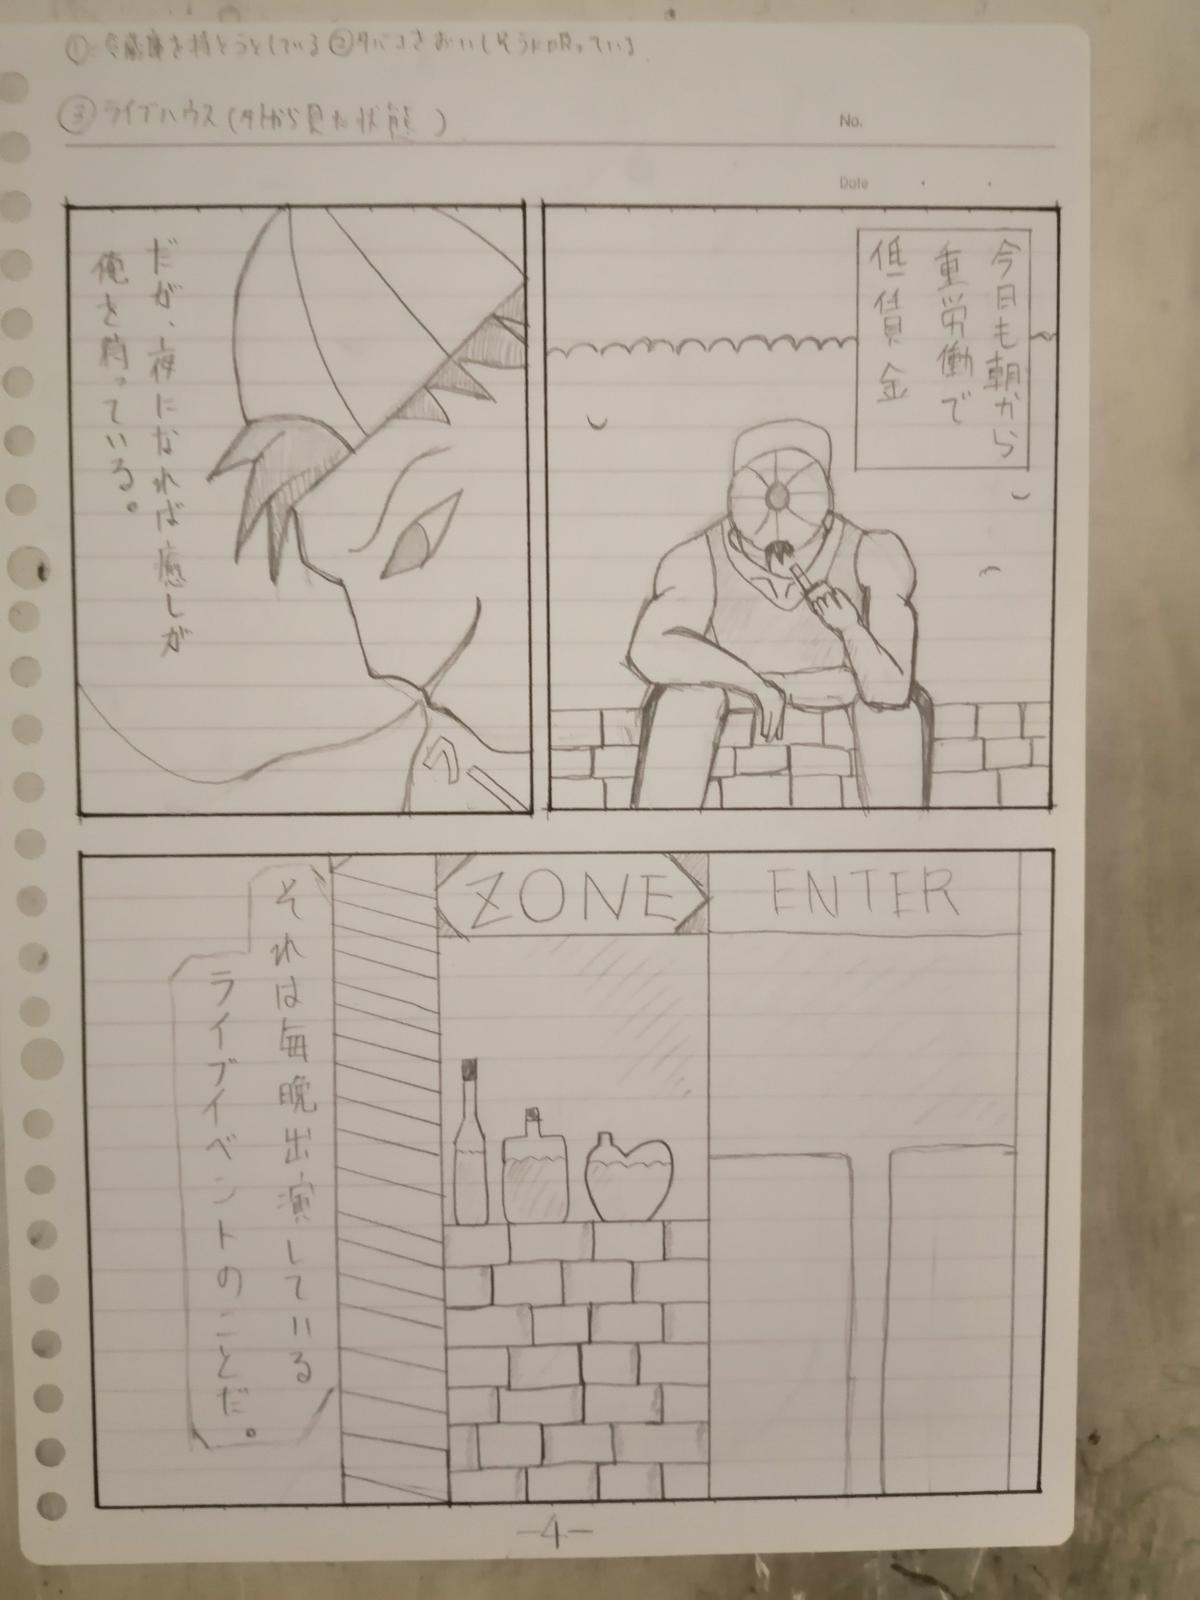 を持とうとしている ②タバコをおいしそうに吸っている
③ライブハウス(外から見た状態)
No.
Date
今日も朝から
重労働で
低賃金
だが、夜になれば癒しが
俺を待っている。
ZONE ENTER
それは毎晩出演している
ライブイベントのことだ。
-4-